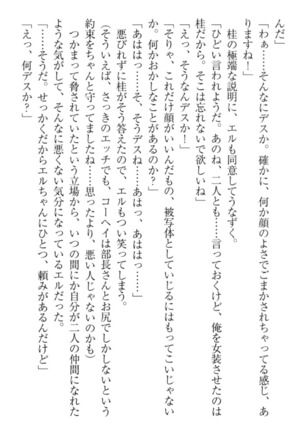 んだ」
「わぁ……そんなにデスか。確かに、何か顔のよさでごまかされちゃってる感じ、あ
りますね！」
　桂の極端な説明に、エルも同意してうなずく。
「ひどい言われようだ。あのね、二人とも……言っておくけど、俺を女装させたのは
桂だから。そこは忘れないで欲しいね」
「えっ、そうなんデスか！」
「そりゃ、これだけ顔がいいんだもの、被写体としていじるにはもってこいじゃない
か。何かおかしなことがあるのか？」
「あははっ……そ、そうデスね……あはっ、あははっ……」
　悪びれずに桂がそう答えたので、エルもつい笑ってしまう。
（そういえば、さっきのエッチでも、コーヘイは部長さんとお尻でしかしないという
約束をちゃんと守ってましたね……思ったより、悪い人じゃないのかも）
　つかまって脅されていたという立場から、いつの間にか自分が二人の仲間になれた
ような気がして、そんなに悪くない気分になっているエルだった。
「……そうだ。せっかくだからエルちゃんにひとつ、頼みがあるんだけど」
「えっ、何デスか？」